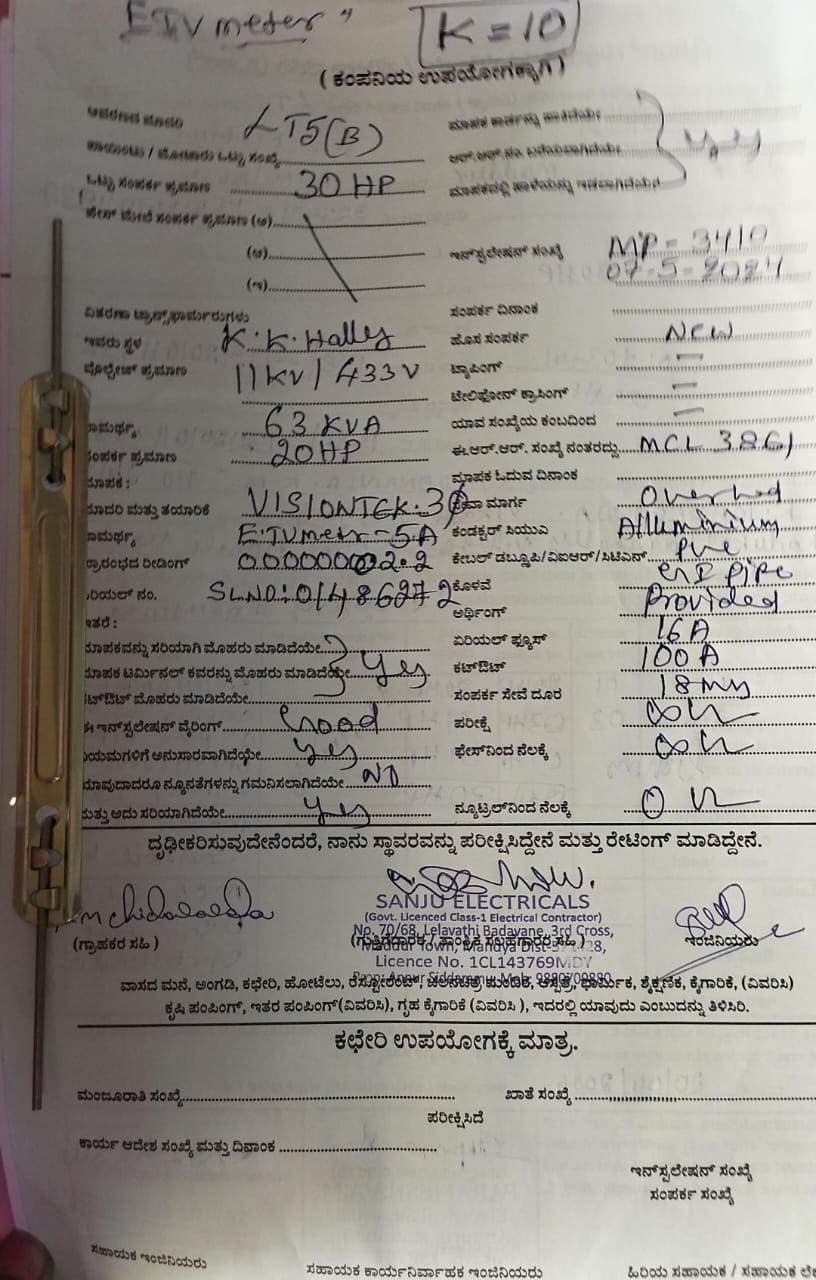 ETV meter" K = 10
( ಕಂಪನಿಯ ಉಪಯೋಗಕ್ಕಾಗಿ )
LT5(B)
ಒಟ್ಟು ಸಂಪರ್ಕ ಪ್ರಮಾಣ 30 HP
(ಆ)
(ಇ)
ಇನ್‌ಸ್ಟಲೇಷನ್ ಸಂಖ್ಯೆ MP = 3410
07-5-2024
ವಿತರಣಾ ಟ್ರಾನ್ಸ್‌ಫಾರ್ಮರುಗಳು ಸಂಪರ್ಕ ದಿನಾಂಕ
ಇವರು ಸ್ಥಳ K.K.Halley ಹೊಸ ಸಂಪರ್ಕ NEW
ವೋಲ್ಟೇಜ್ ಪ್ರಮಾಣ 11KV / 433V ಟ್ಯಾಪಿಂಗ್ –
ಟೆಲಿಫೋನ್ ಕ್ರಾಸಿಂಗ್ –
ಾಮರ್ಥ್ಯ 63 KVA ಯಾವ ಸಂಖ್ಯೆಯ ಕಂಬದಿಂದ –
ಸಂಪರ್ಕ ಪ್ರಮಾಣ 20HP ಈ.ಆರ್.ಆರ್. ಸಂಖ್ಯೆ ನಂತರದ್ದು MCL 3861
ಮಾಪಕ : ಮಾಪಕ ಓದುವ ದಿನಾಂಕ
ಮಾದರಿ ಮತ್ತು ತಯಾರಿಕೆ VISIONTEK-3Ø ಸೇವಾ ಮಾರ್ಗ Overhed
ಾಮರ್ಥ್ಯ ETVmetr-5A ಕಂಡಕ್ಟರ್ ಸಿಯುವಿ Alluminium
ಪ್ರಾರಂಭದ ರೀಡಿಂಗ್ 00000002.2 ಕೇಬಲ್ ಡಬ್ಲ್ಯೂಪಿ/ವಿಐಆರ್/ಸಿಟಿಎಸ್ pvc
ಸೀರಿಯಲ್ ನಂ. SLNO:01486272 ಕೊಳವೆ GI pipe
ಅರ್ಥಿಂಗ್ Provided
ಇತರೆ : ಏರಿಯಲ್ ಫ್ಯೂಸ್ 16A
ಮಾಪಕವನ್ನು ಸರಿಯಾಗಿ ಮೊಹರು ಮಾಡಿದೆಯೇ
ಮಾಪಕ ಟರ್ಮಿನಲ್ ಕವರನ್ನು ಮೊಹರು ಮಾಡಿದೆಯೇ Yes ಕಟ್‌ಔಟ್ 100A
ಕಟ್‌ಔಟ್ ಮೊಹರು ಮಾಡಿದೆಯೇ ಸಂಪರ್ಕ ಸೇವೆ ದೂರ 18
ಈ ಇನ್‌ಸ್ಟಲೇಷನ್ ವೈರಿಂಗ್ Good ಪರೀಕ್ಷೆ
ನಿಯಮಗಳಿಗೆ ಅನುಸಾರವಾಗಿದೆಯೇ Yes ಫೇಸ್‌ನಿಂದ ನೆಲಕ್ಕೆ
ಯಾವುದಾದರೂ ನ್ಯೂನತೆಗಳನ್ನು ಗಮನಿಸಲಾಗಿದೆಯೇ NO
ಮತ್ತು ಅದು ಸರಿಯಾಗಿದೆಯೇ Yes ನ್ಯೂಟ್ರಲ್‌ನಿಂದ ನೆಲಕ್ಕೆ
ದೃಢೀಕರಿಸುವುದೇನೆಂದರೆ, ನಾನು ಸ್ಥಾವರವನ್ನು ಪರೀಕ್ಷಿಸಿದ್ದೇನೆ ಮತ್ತು ರೇಟಿಂಗ್ ಮಾಡಿದ್ದೇನೆ.
SANJU ELECTRICALS
(Govt. Licenced Class-1 Electrical Contractor)
No. 70/68, Lelavathi Badavane, 3rd Cross,
Maddur Town, Mandya Dist-571428,
(ಗ್ರಾಹಕರ ಸಹಿ ) (ಗುತ್ತಿಗೆದಾರರ / ತಾಂತ್ರಿಕ ಸಲಹಗಾರರ ಸಹಿ ) ಇಂಜಿನಿಯರು
Licence No. 1CL143769MDY
ವಾಸದ ಮನೆ, ಅಂಗಡಿ, ಕಛೇರಿ, ಹೋಟೆಲು, ರೆಸ್ಟೋರೆಂಟ್, ಚಲನಚಿತ್ರ ಮಂದಿರ, ಆಸ್ಪತ್ರೆ, ಧಾರ್ಮಿಕ, ಶೈಕ್ಷಣಿಕ, ಕೈಗಾರಿಕೆ, (ವಿವರಿಸಿ)
ಕೃಷಿ ಪಂಪಿಂಗ್, ಇತರ ಪಂಪಿಂಗ್(ವಿವರಿಸಿ), ಗೃಹ ಕೈಗಾರಿಕೆ (ವಿವರಿಸಿ ), ಇದರಲ್ಲಿ ಯಾವುದು ಎಂಬುದನ್ನು ತಿಳಿಸಿರಿ.
ಕಛೇರಿ ಉಪಯೋಗಕ್ಕೆ ಮಾತ್ರ.
ಮಂಜೂರಾತಿ ಸಂಖ್ಯೆ ಖಾತೆ ಸಂಖ್ಯೆ
ಪರೀಕ್ಷಿಸಿದೆ
ಕಾರ್ಯ ಆದೇಶ ಸಂಖ್ಯೆ ಮತ್ತು ದಿನಾಂಕ
ಇನ್‌ಸ್ಟಲೇಷನ್ ಸಂಖ್ಯೆ
ಸಂಪರ್ಕ ಸಂಖ್ಯೆ
ಸಹಾಯಕ ಇಂಜಿನಿಯರು ಸಹಾಯಕ ಕಾರ್ಯನಿರ್ವಾಹಕ ಇಂಜಿನಿಯರು ಹಿರಿಯ ಸಹಾಯಕ / ಸಹಾಯಕ